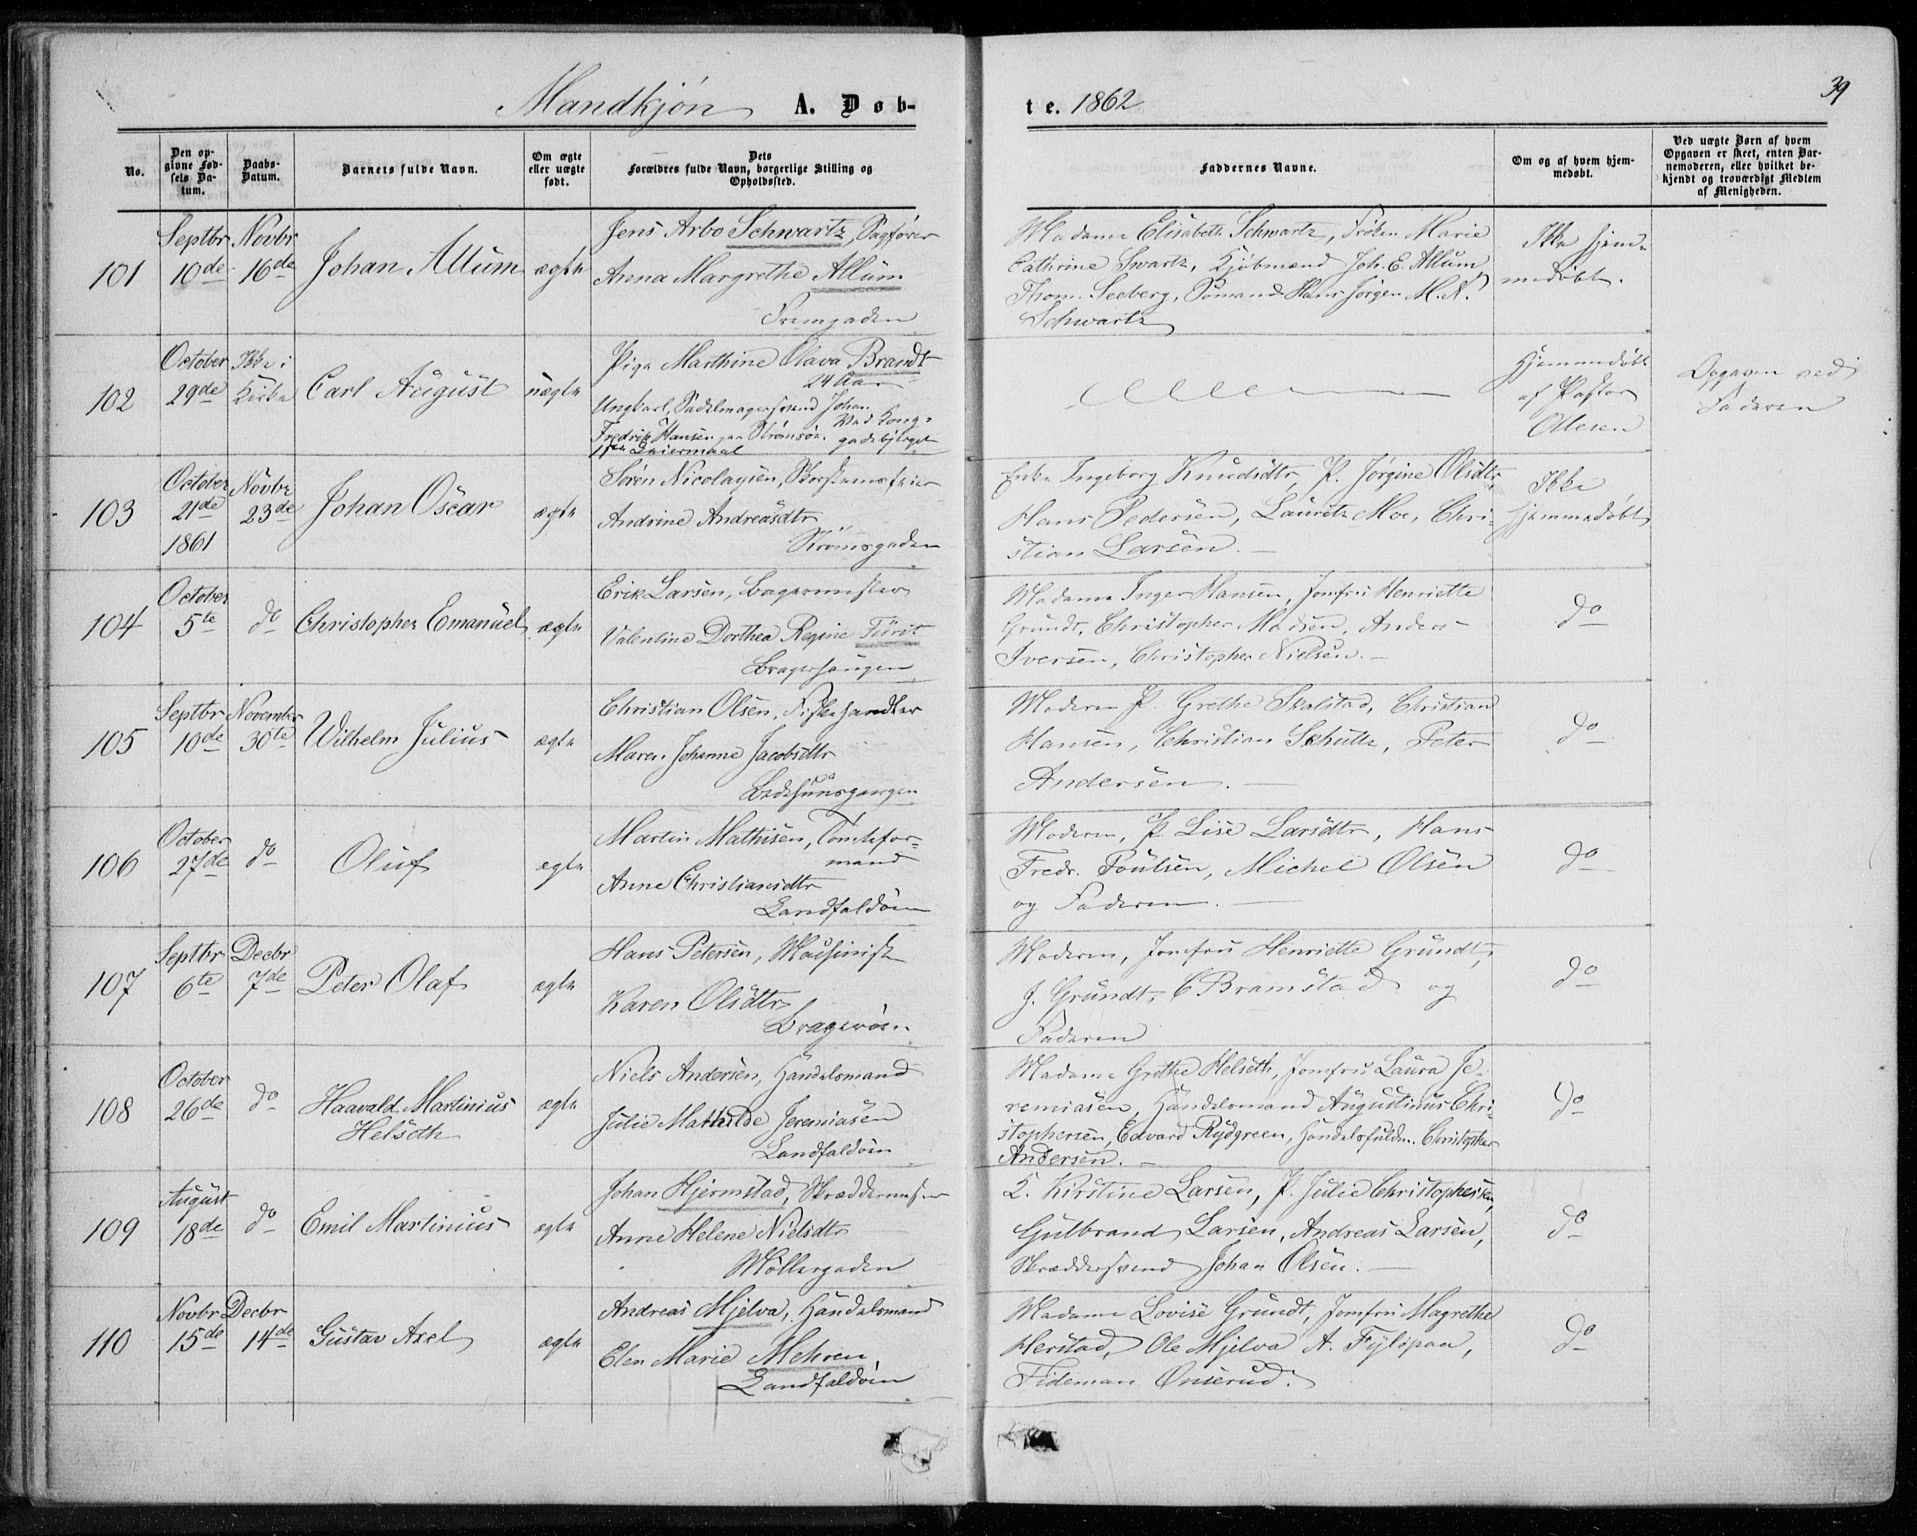 Mandkjön A. Døb-
te. 1862
39
No.
Den opgivne Fødsels Datum.
Daabs-Datum.
Barnets fulde Navn.
Om ægte eller uægte født.
Dets Forældres fulde Navn, borgerlige Stilling og Opholdssted.
Faddernes Navne.
Om og af hvem hjemmedøbt.
Ved uægte Børn af hvem Opgaven er skeet, enten Barnemoderen, eller hvilket bekjendt og troværdigt Medlem af Menigheden.
101
Septbr 10de
Novbr 16de
Johan Allum
ægte
Jens Arbo Schwartz, Sagfører
Anna Margrethe Allum
Madame Elisabeth Schwartz, Frøken Marie
Cathrine Swartz, Kjöbmænd Joh. E. Allum,
Thom. Seeberg, Sömand Hans Jörgen M. N.
Schwartz
Ikke hjemmedøbt.
102
October 29de
Ikke i Kirke
Carl August
uægte
Pige Marthine Olava Brandt
24 Aar
Ungkarl, Sadelmagersvend Johan
Fredrik Hansen paa Strømsöe.
1ste Leiermaal
Hjemmedøbt
af Pastor
Ollesen
Opgaven ved
Faderen
103
October 21de 1861
Novbr 23de
Johan Oscar
ægte
Sören Nicolaysen, Skorstensfeier
Andrine Andreasdtr
Enke Ingeborg Knudsdtr, P. Jörgine Olsdtr,
Hans Pedersen, Lauritz Moe, Chri-
stian Larsen.
Ikke
hjemmedøbt
104
October 5te
do
Christopher Emanuel
ægte
Erik Larsen, Bagermester
Valentine Dorthea Regine
Madame Inger Hansen, Jomfru Henriette
Grundt, Christopher Madsen, Anders
Iversen, Christopher Nielsen.
do
105
Septbr 10de
November 30te
Wilhelm Julius
ægte
Christian Olsen, Fiskehandler
Maren Johanne Jacobsdtr
Bedehuusgangen
Moderen P. Grethe Skalstad, Christian
Hansen, Christian Schultz, Peter
Andersen.
do
106
October 27de
do
Oluf
ægte
Martin Mathisen, Tomtefor-
mand
Anne Christiansdtr
Landfaldöen
Moderen, P. Lise Larsdtr, Hans
Fredr. Poulsen, Michel Olsen
og Faderen.
do
107
Septbr 6te
Decbr 7de
Peter Olaf
ægte
Hans Petersen, Maschinist
Karen Olsdtr
Moderen, Jomfru Henriette Grundt,
J. Grundt, C Bramstad og
Faderen
do
108
October 26de
do
Haavald Martinius
Helseth
ægte
Niels Andersen, Handelsmand
Julie Mathilde Jeremiasen
Landfaldöen
Madame Grethe Helseth, Jomfru Laura Je-
remiasen, Handelsmand Augustinus Chri-
stophersen, Edvard Rydgreen, Handelsfuldm. Christopher
Andersen.
do
109
August 18de
do
Emil Martinius
ægte
Johan Hjermstad, Skræddermester
Anne Helene Nielsdtr
Möllergaden
K. Kirstine Larsen, P. Julie Christophersen,
Gulbrand Larsen, Andreas Larsen,
Skræddersvend Johan Olsen.
do
110
Novbr 15de
Decbr 14de
Gustav Axel
ægte
Andreas Mjelva, Handelsmand
Elen Marie Mehren
Landfaldöen
Madame Lovise Grundt, Jomfru Magrethe
Herstad, Ole Mjelva A. Fylspaa,
Tideman Onserud.
do